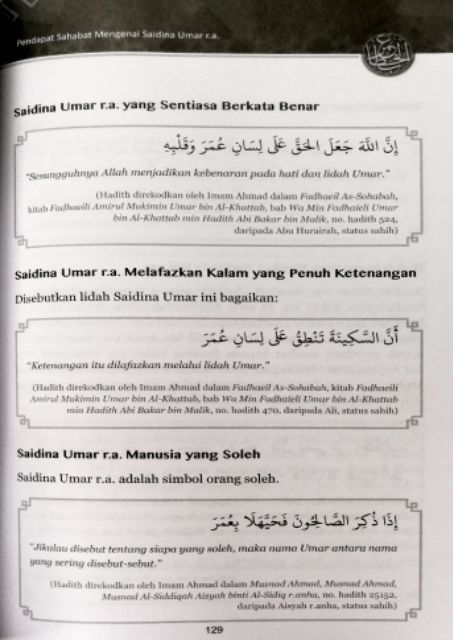 Pendapat Sahabat Mengenai Saidina Umar r.a.
Saidina Umar r.a. yang Sentiasa Berkata Benar
إِنَّ اللَّهَ جَعَلَ الحَقَّ عَلَى لِسَانِ عُمَرَ وَقَلْبِهِ
"Sesungguhnya Allah menjadikan kebenaran pada hati dan lidah Umar."
(Hadith direkodkan oleh Imam Ahmad dalam Fadhaeil As-Sohabah,
kitab Fadhaeili Amirul Mukimin Umar bin Al-Khattab, bab Wa Min Fadhaieli Umar
bin Al-Khattab min Hadith Abi Bakar bin Malik, no. hadith 524,
daripada Abu Hurairah, status sahih)
Saidina Umar r.a. Melafazkan Kalam yang Penuh Ketenangan
Disebutkan lidah Saidina Umar ini bagaikan:
أَنَّ السَّكِينَةَ تَنْطِقُ عَلَى لِسَانِ عُمَرَ
"Ketenangan itu dilafazkan melalui lidah Umar."
(Hadith direkodkan oleh Imam Ahmad dalam Fadhaeil As-Sohabah, kitab Fadhaeili
Amirul Mukimin Umar bin Al-Khattab, bab Wa Min Fadhaieli Umar bin Al-Khattab
min Hadith Abi Bakar bin Malik, no. hadith 470, daripada Ali, status sahih)
Saidina Umar r.a. Manusia yang Soleh
Saidina Umar r.a. adalah simbol orang soleh.
إِذَا ذُكِرَ الصَّالِحُونَ فَحَيَّهَلًا بِعُمَرَ
"Jikalau disebut tentang siapa yang soleh, maka nama Umar antara nama
yang sering disebut-sebut."
(Hadith direkodkan oleh Imam Ahmad dalam Musnad Ahmad, Musnad Ahmad,
Musnad Al-Siddiqah Aisyah binti Al-Sidiq r.anha, no. hadith 25152,
daripada Aisyah r.anha, status sahih)
129